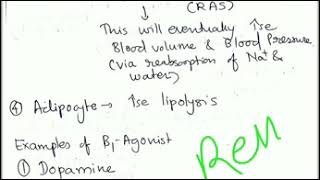 (RAS)
This will eventually ↑se
Blood volume & Blood Pressure
(via reabsorption of Na+ &
water)
④ Adipocyte → ↑se lipolysis
Examples of B1-Agonist
① Dopamine
Rem